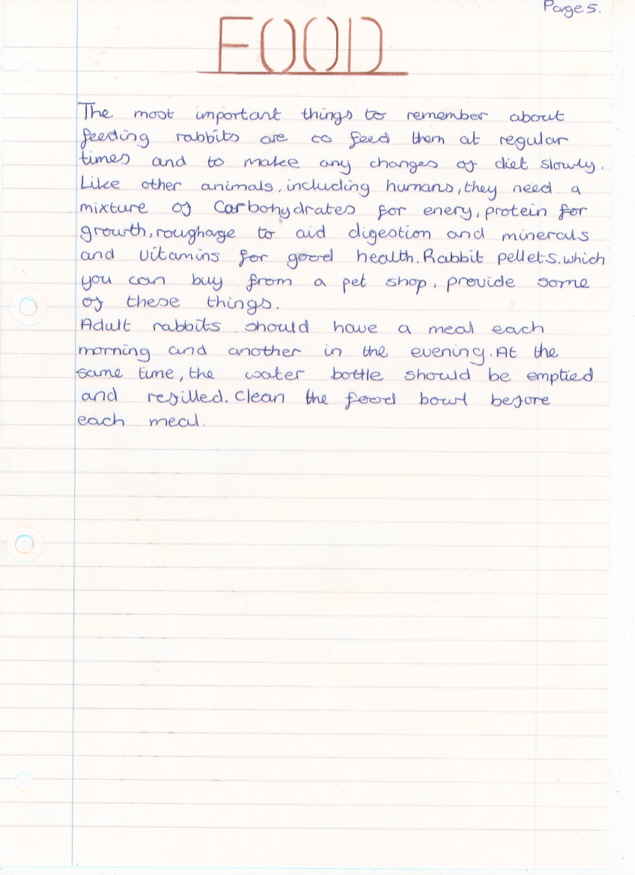 Page 5.
FOOD
The most important things to remember about
feeding rabbits are to feed them at regular
times and to make any changes of diet slowly.
Like other animals, including humans, they need a
mixture of Carbohydrates for enery, protein for
growth, roughage to aid digestion and minerals
and vitamins for good health. Rabbit pellets. which
you can buy from a pet shop, provide some
of these things.
Adult rabbits should have a meal each
morning and another in the evening. At the
same time, the water bottle should be emptied
and refilled. Clean the food bowl before
each meal.